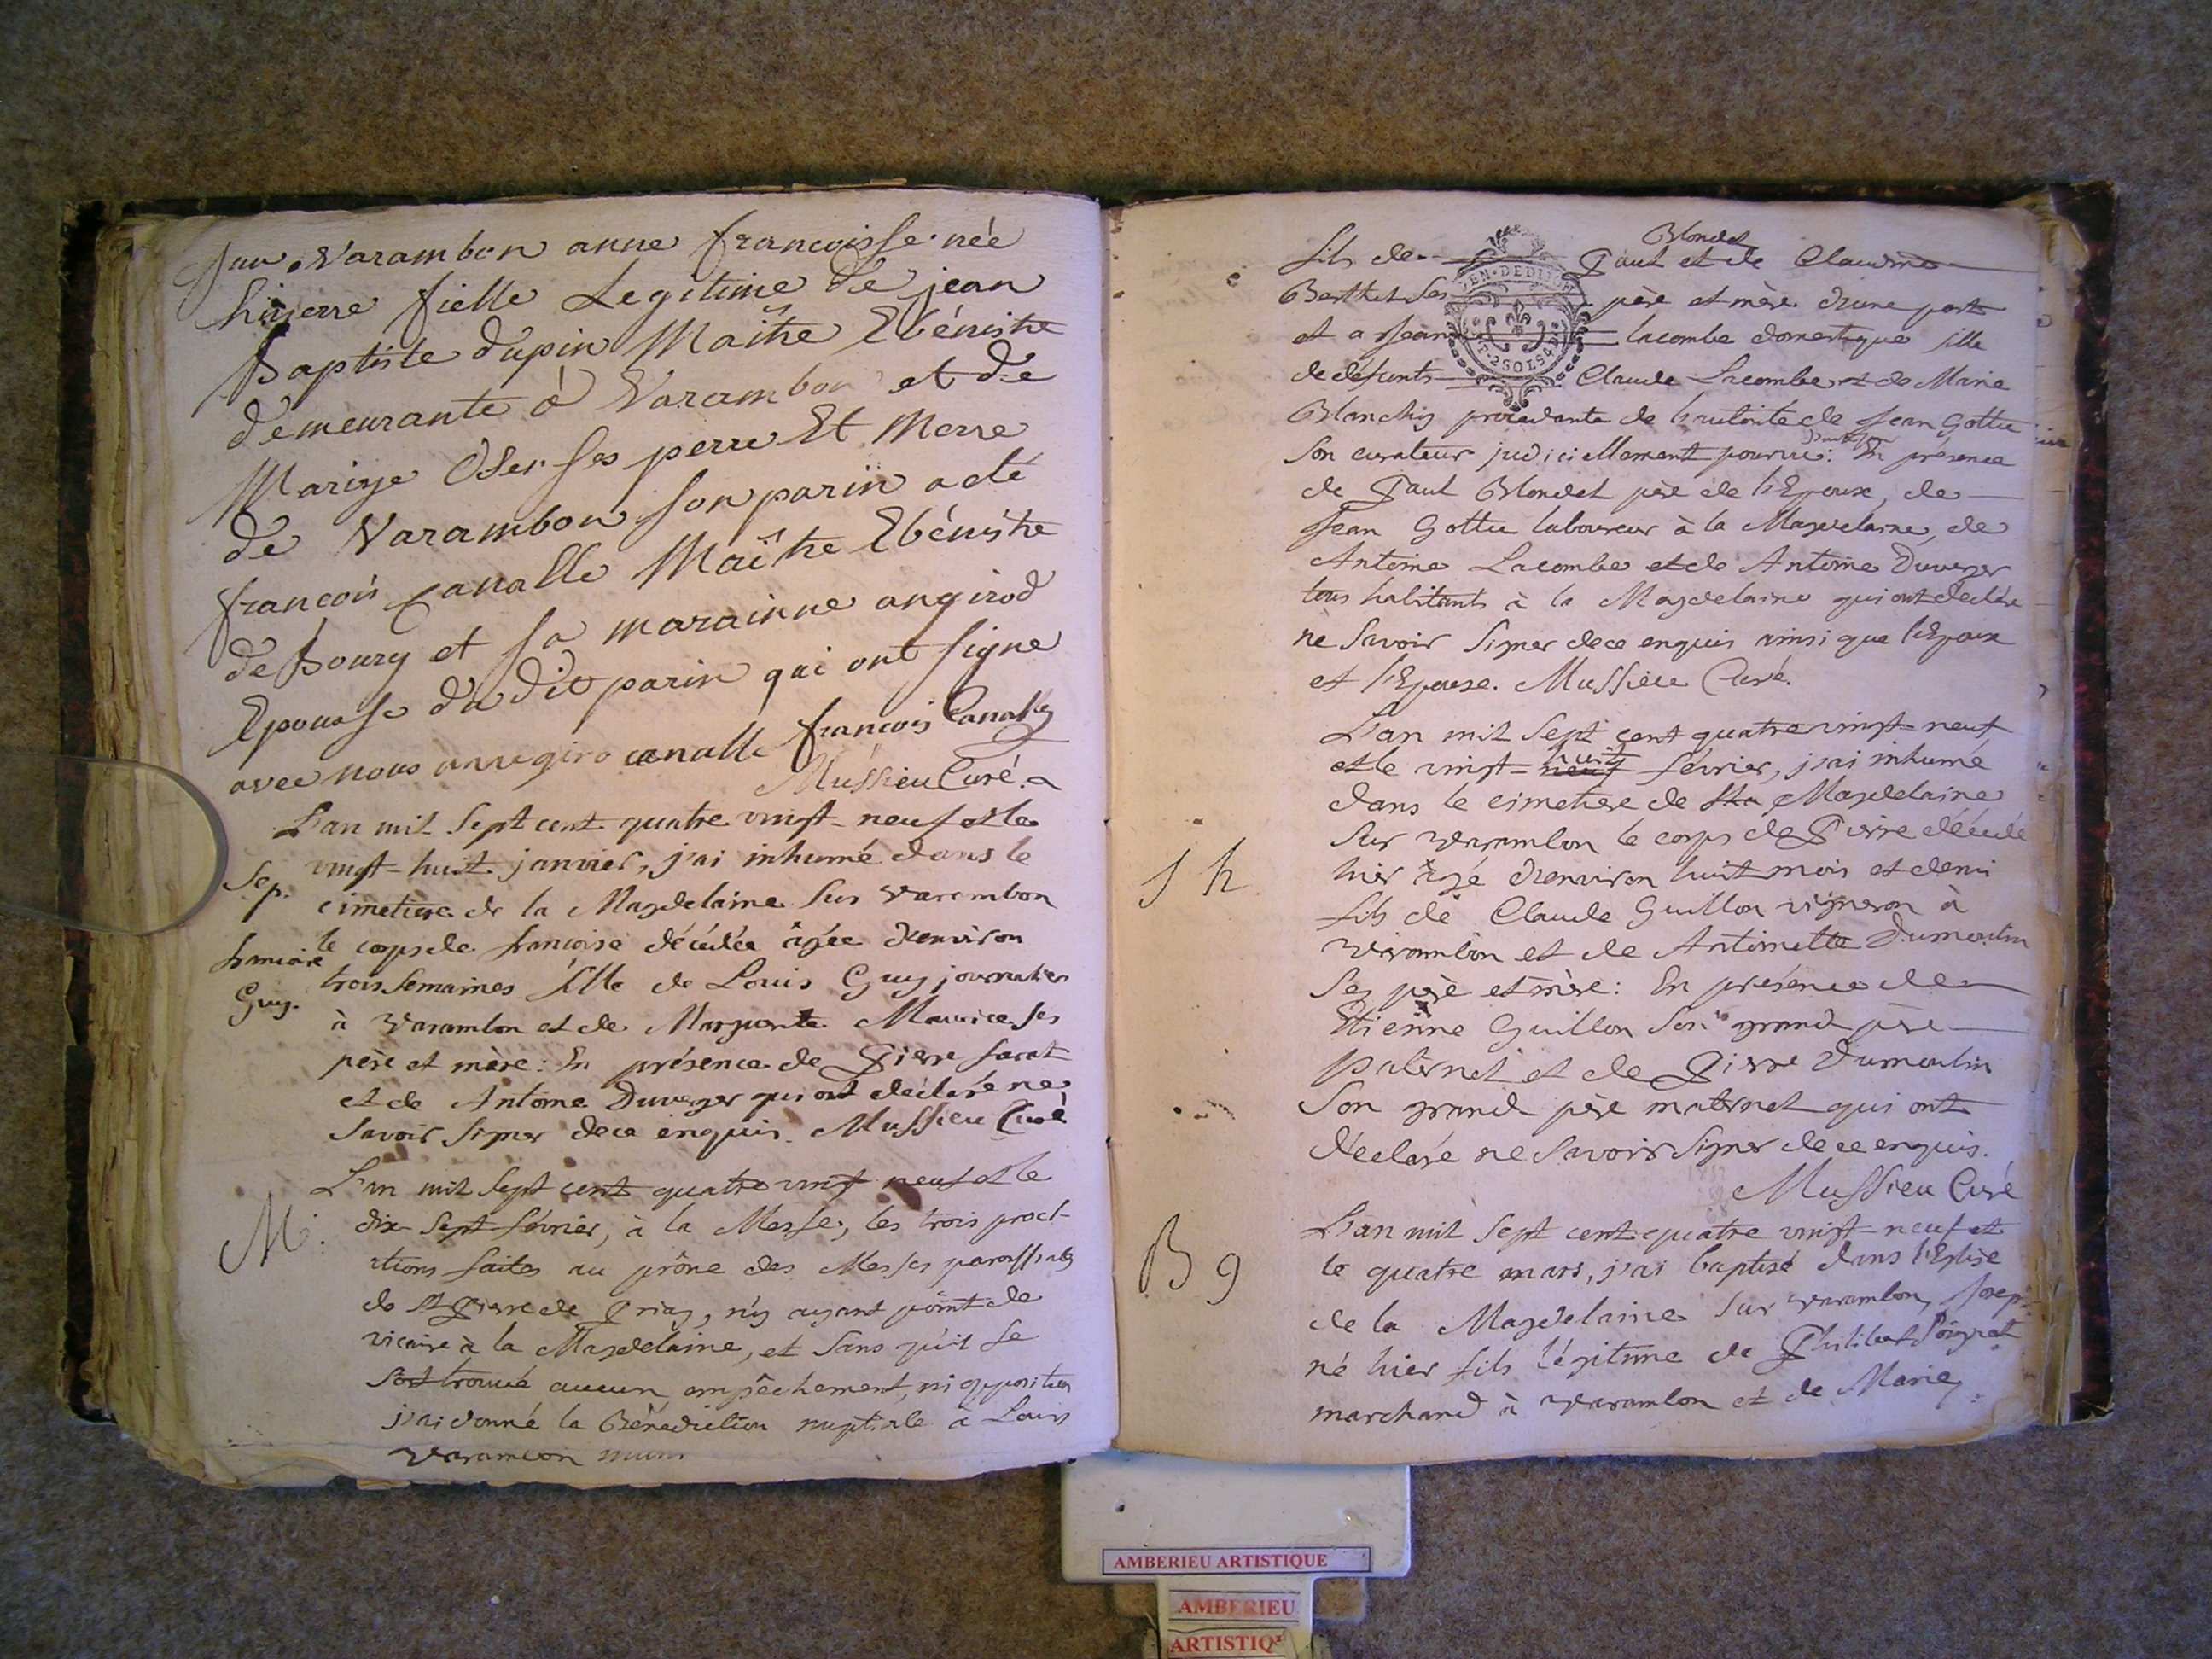 Sur Varambon anne francoisse née
hiyerre fielle Legitime de jean
Baptiste dupin Maître Ebéniste
demeurante à Varambon et de
Mariye Oser ses perre Et Merre
de Varambon son parin a été
françois Canalle Maître Ebéniste
de Bourg et sa marainne angirod
Epousse du dit parin qui ont signe
avec nous canalle françois Canalle
Mussieu Curé
Sep.
françoise
Guy.
L'an mil sept cent quatre vingt-neuf et le
vingt-huit janvier, j'ai inhumé dans le
cimetiere de la Magdelaine sur Varembon
le corps de françoise décédée âgée d'environ
trois semaines fille de Louis Guy journalier
à Varambon et de Marguerite Maurice ses
père et mère: En présence de Pierre
et de Antoine Duverger qui ont déclaré ne
savoir signer de ce enquis. Mussieu Curé
M.
L'an mil sept cent quatre vingt neuf et le
dix-sept février, à la Messe, les trois procl-
ations faites au prône des Messes paroissiales
de St Pierre de Priay, n'y ayant point de
vicaire à la Magdelaine, et sans qu'il se
soit trouvé aucun empêchement, ni opposition
j'ai donné la Bénédiction nuptiale à Louis
Blondet
fils de Paul et de Claudine
Berthet ses père et mère d'une part
et a Jeanne lacombe domestique fille
de défunts Claude Lacombe et de Marie
Blanchy procedante de l'autorité de Jean Gottu
son curateur judiciellement pourvu: d'autre part En présence
de Paul Blondet père de l'Epoux, de
Jean Gottu laboureur à la Magdelaine, de
Antoine Lacombe et de Antoine Duverger
tous habitants à la Magdelaine qui ont déclaré
ne savoir signer de ce enquis ainsi que l'Epoux
et l'Epouse. Mussieu Curé.
S h
L'an mil sept cent quatre vingt-neuf
et le vingt-neuf huit février, j'ai inhumé
dans le cimetiere de la Magdelaine
sur varambon le corps de Pierre décédé
hier âgé d'environ huit mois et demi
fils de Claude Guillon vigneron à
varambon et de Antoinette Dumoulin
ses père et mère: En présence de
Etienne Guillon son grand père
paternel et de Pierre Dumoulin
son grand père maternel qui ont
déclaré ne savoir signer de ce enquis.
Mussieu Curé
B 9
L'an mil sept cent quatre vingt-neuf et
le quatre mars, j'ai baptisé dans l'Eglise
de la Magdelaine sur varambon, Josep
né hier fils légitime de Philibert
marchand à varambon et de Marie
EN DEDIT
2 SOLS 4 D
AMBERIEU ARTISTIQUE
AMBERIEU
ARTISTIQ